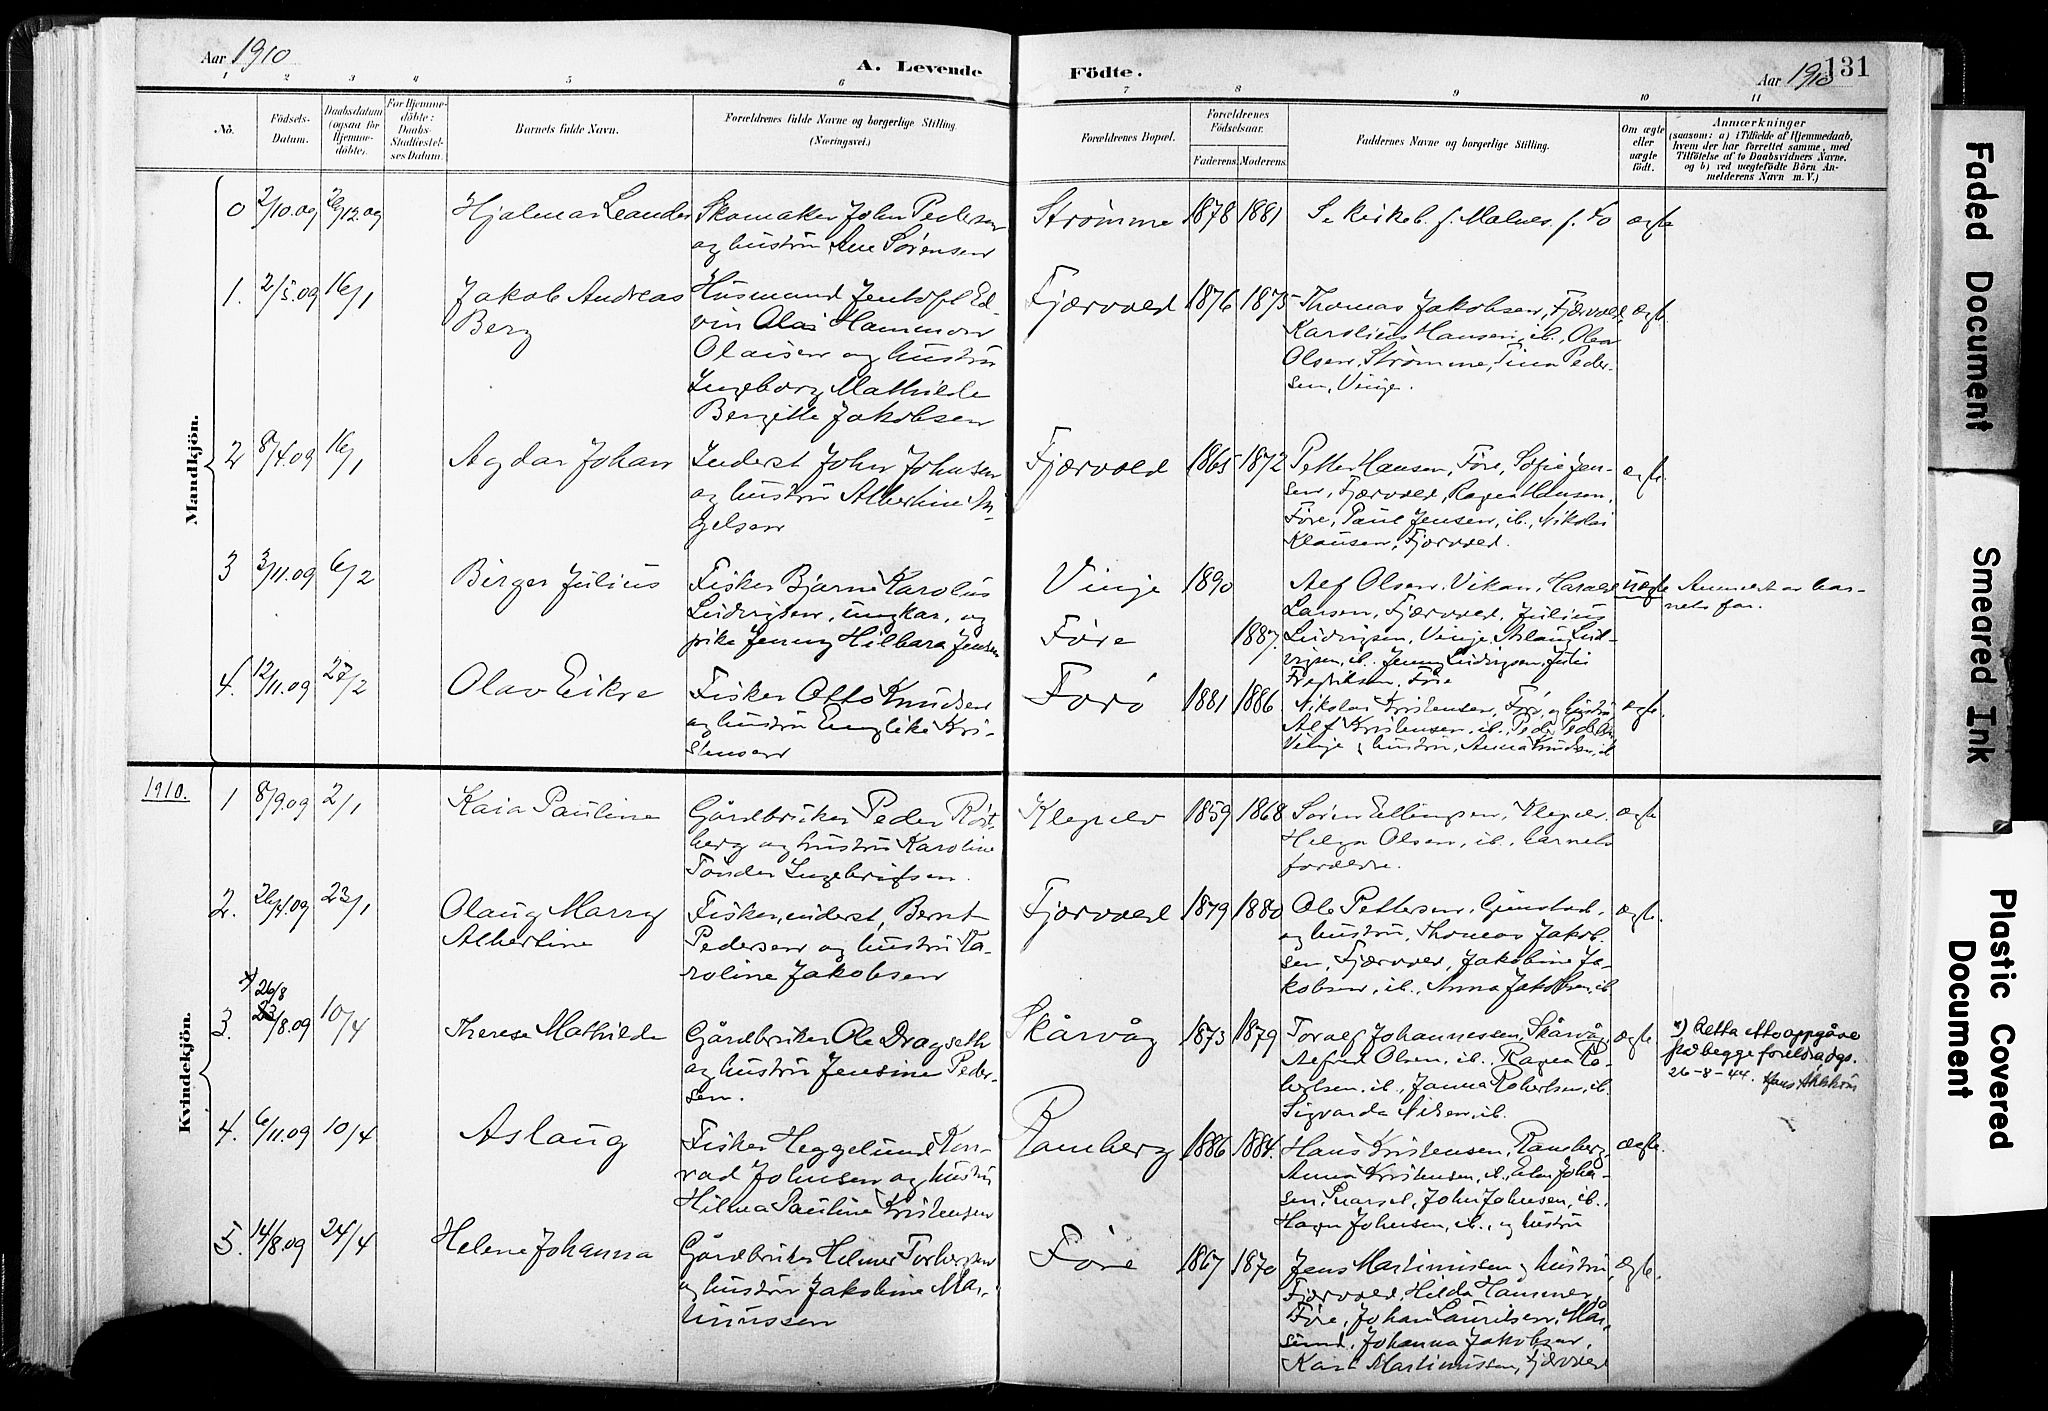 Aar 1910
A. Levende Födte.
Aar 1910
131
1 2 3 4 5 6 7 8 9 10 11
No.
Födsels-
Datum.
Daabsdatum
(ogsaa for
Hjemme-
döbte).
For Hjemme-
döbte:
Daabs-
Stadfæstel-
ses Datum.
Barnets fulde Navn.
Forældrenes fulde Navne og borgerlige Stilling.
(Næringsvei.)
Forældrenes Bopæl.
Forældrenes
Födselsaar.
Faderens. Moderens.
Faddernes Navne og borgerlige Stilling.
Om ægte
eller
uægte
född.
Anmærkninger
(saasom: a) i Tilfælde af Hjemmedaab,
hvem der har forrettet samme, med
Tilföielse af to Daabsvidners Navne.
og b) ved uægtefödte Börn An-
melderens Navn m. V.)
Mandkjön.
0 2/10.09 26/12.09 Hjalmar Leander
Skomaker John Pedersen
og hustru Ane Sørensen
Strømme 1878 1881
S. kirkeb. f. Malnes f. Fo ægte
1. 2/5.09 16/1 Jakob Andreas
Berg
Husmand Jentoft Ed-
vin Olai Hammon
Olaisen og hustru
Ingeborg Mathilde
Bergitte Jakobsen
Fjærvold 1876 1875
Thomas Jakobsen, Fjærvold,
Karolius Hansen, ib., Olea
Olsen, Strømme, Tina Peder-
sen, Vinje.
ægte
2 8/4.09 16/1 Agdar Johan
Inderst John Johnsen
og hustru Albertine In-
gelsen
Fjærvold 1865 1872
Petter Hansen, Føre, Sofie Jen-
sen, Fjærvold, Ragna Hansen,
Føre, Paul Jensen, ib., Nikolai
Klausen, Fjærvold.
ægte
3 3/11.09 6/2 Birger Julius
Fisker Bjarne Karolius
Ludvigsen, ungkar, og
pike Jenny Hilbara Jensen
Vinje 1890
Føre 1887.
Alf Olsen, Vikan, Harald
Larsen, Fjærvold, Julius
Ludvigsen, Vinje, Aslaug Lud-
vigsen, ib., Jenny Ludvigsen, Juli
Fredriksen, Føre
uægte
Anmeldt av bar-
nets far.
4. 12/11.09 27/2 Olav Eikre
Fisker Otto Knudsen
og hustru Englike Kri-
stensen
Forø 1881 1886
Nikolai Kristensen, Forø, og hustru
Alf Kristensen, ib., Peder Pedersen
Vinje, hustru, Anna Knudsen, ib
ægte.
1910.
Kvindekjön.
1 8/9.09 2/1 Kaia Pauline
Gårdbruker Peder Røst-
berg og hustru Karoline
Tønder Ingebrigtsen.
Klepelv 1859 1868
Søren Ellingsen, Klepelv.
Helga Olsen, ib., barnets
forældre.
ægte
2. 26/4.09 23/1 Olaug Marry
Albertine
Fisker, inderst, Bernt
Pedersen og hustru Ka-
roline Jakobsen
Fjærvold 1879 1880
Ole Pettersen, Gimstad,
og hustru, Thomas Jakob-
sen, Fjærvold, Jakobine Ja-
kobsen, ib., Anna Jakobsen, ib
ægte.
*) 26/8
3. 23/8.09 10/4 Therese Mathilde
Gårdbruker Ole Dragseth
og hustru Jensine Peder-
sen.
Skårvåg 1873 1879
Toralf Johannessen, Skårvåg,
Alfred Olsen, ib., Ragna Ro-
bertsen, ib., Janna Robertsen, ib.
Sigvarda Nilsen, ib.
ægte
*) Retta etter oppgåve
frå begge foreldra dgs.
26-8-44.
4. 6/11.09 10/4 Aslaug
Fisker Heggelund Kon-
rad Johnsen og hustru
Hilma Pauline Kristensen
Ramberg 1886 1884.
Hans Kristensen, Ramberg,
Anna Kristensen, ib., Johan-
sen, John Johnsen, ib.,
Hagn Johnsen, ib., og hustru
ægte.
5. 14/8.09 24/4 Helene Johanna
Gårdbruker Helmer Torbergsen
og hustru Jakobine Mar-
tinussen
Føre 1867 1870
Jens Martinussen og hustru,
Fjærvold, Hilda Hammer,
Føre, Johan Lauritsen, Må-
sund, Johanna Jakobsen,
Karl Martinussen, Fjærvold
ægte.
Faded Document
Smeared Ink
Plastic Covered
Document